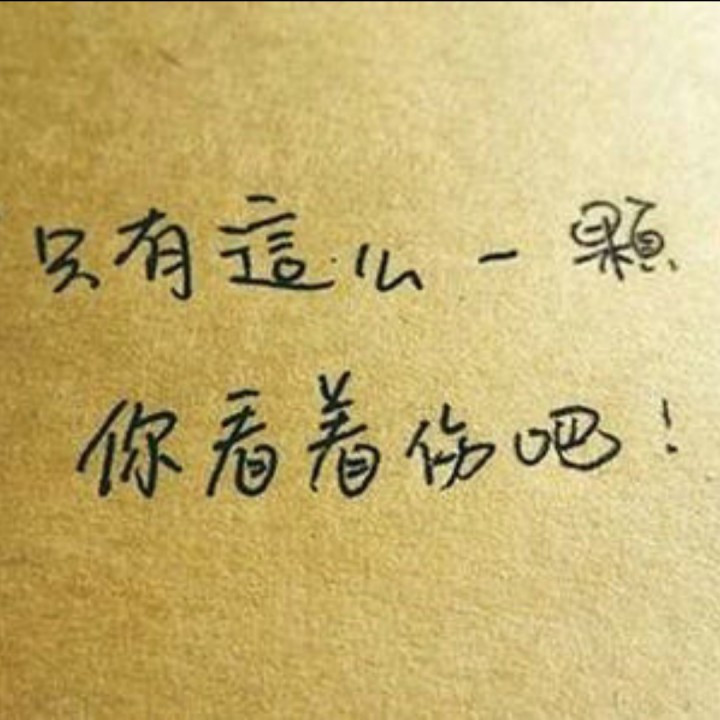 只有這么一顆
你看着伤吧！